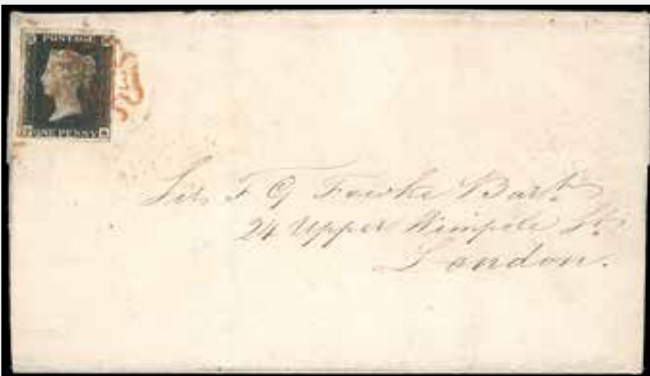 POSTAGE
ONE PENNY
Sir F G Fowke Bart.
24 Upper Wimpole St.
London.